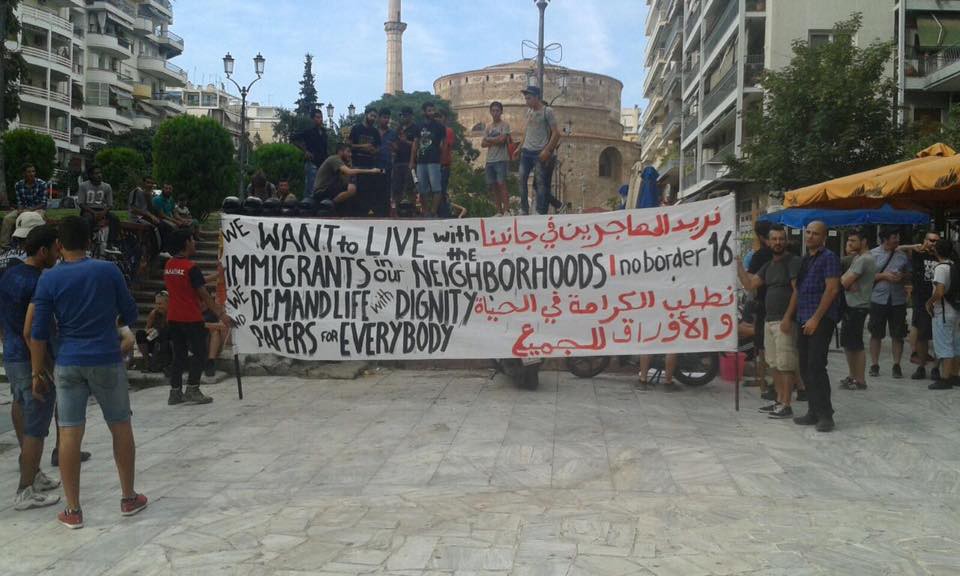 WE WANT to LIVE with the
IMMIGRANTS in our NEIGHBORHOODS
WE DEMAND LIFE with DIGNITY
AND PAPERS FOR EVERYBODY
نريد المهاجرين في جانبنا
no border 16
نطلب الكرامة في الحياة
و الأوراق للجميع